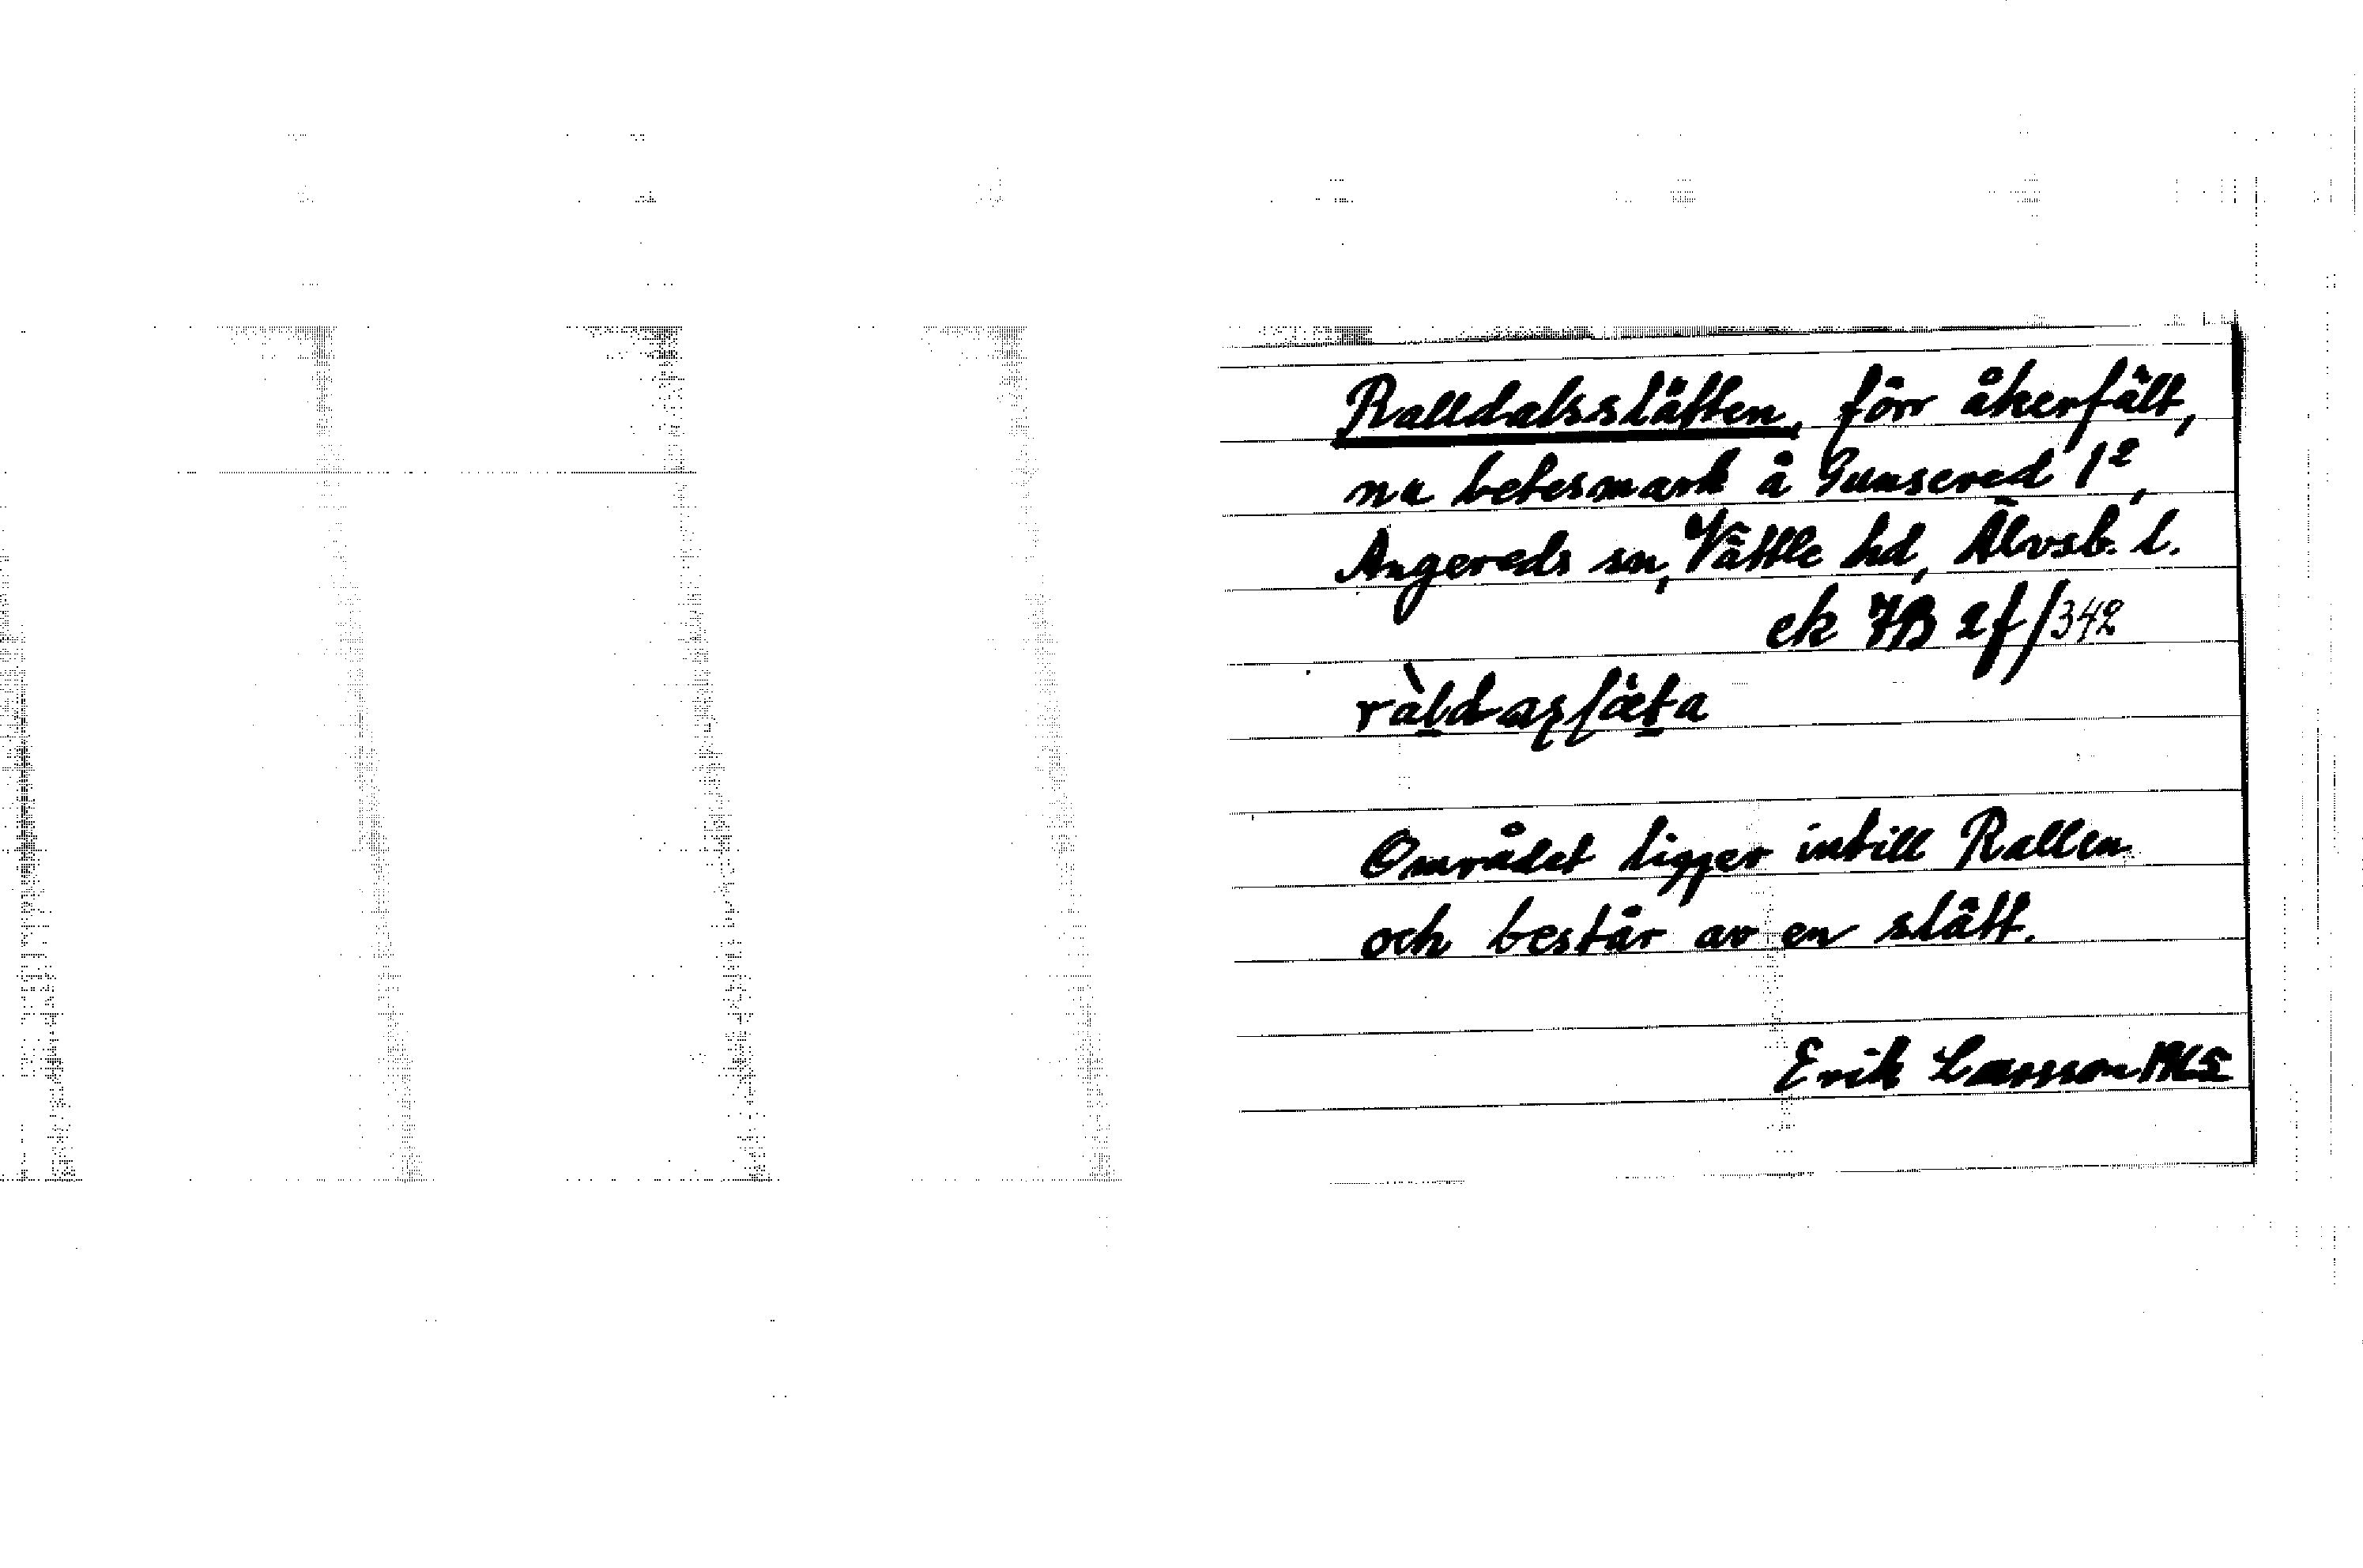 Ralldalsslätten, förr åkerfält,
nu betesmark å Gunsered 1²,
Angereds sn, Vättle hd, Älvsb. l.
ek 7B 2f/342
Området ligger intill Rallen
och består av en slätt.
Erik Larsson 1965